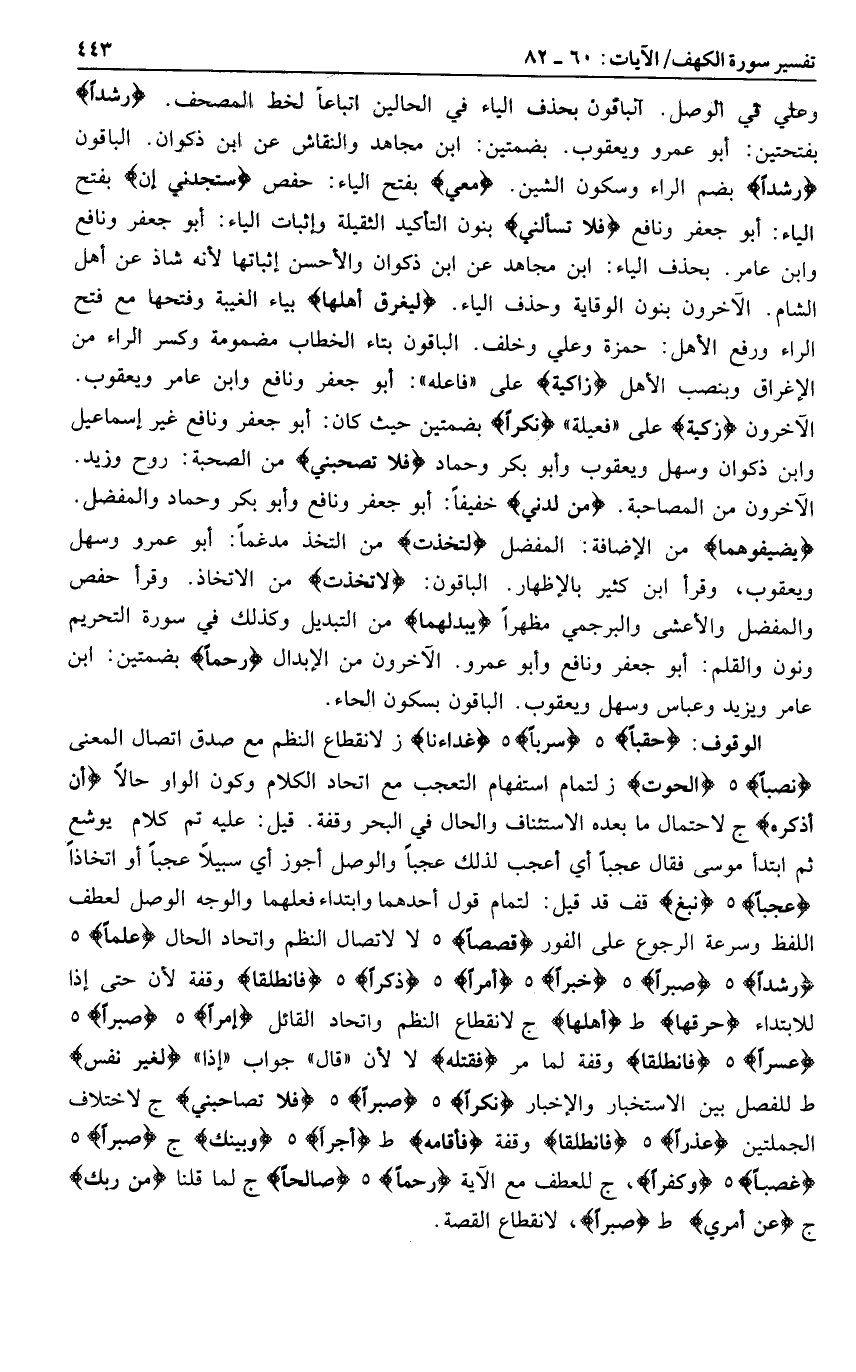 تفسير سورة الكهف/ الآيات: ٦٠ ـ ٨٢
٤٤٣
وعلي في الوصل. الباقون بحذف الياء في الحالين اتباعاً لخط المصحف. ﴿رشداً﴾
بفتحتين: أبو عمرو ويعقوب. بضمتين: ابن مجاهد والنقاش عن ابن ذكوان. الباقون
﴿رشداً﴾ بضم الراء وسكون الشين. ﴿معي﴾ بفتح الياء: حفص ﴿ستجدني إن﴾ بفتح
الياء: أبو جعفر ونافع ﴿فلا تسألني﴾ بنون التأكيد الثقيلة وإثبات الياء: أبو جعفر ونافع
وابن عامر. بحذف الياء: ابن مجاهد عن ابن ذكوان والأحسن إثباتها لأنه شاذ عن أهل
الشام. الآخرون بنون الوقاية وحذف الياء. ﴿ليغرق أهلها﴾ بياء الغيبة وفتحها مع فتح
الراء ورفع الأهل: حمزة وعلي وخلف. الباقون بتاء الخطاب مضمومة وكسر الراء من
الإغراق وبنصب الأهل ﴿زاكية﴾ على «فاعله»: أبو جعفر ونافع وابن عامر ويعقوب.
الآخرون ﴿زكية﴾ على «فعيلة» ﴿نكراً﴾ بضمتين حيث كان: أبو جعفر ونافع غير إسماعيل
وابن ذكوان وسهل ويعقوب وأبو بكر وحماد ﴿فلا تصحبني﴾ من الصحبة: روح وزيد.
الآخرون من المصاحبة. ﴿من لدني﴾ خفيفاً: أبو جعفر ونافع وأبو بكر وحماد والمفضل.
﴿يضيفوهما﴾ من الإضافة: المفضل ﴿لتخذت﴾ من التخذ مدغماً: أبو عمرو وسهل
ويعقوب، وقرأ ابن كثير بالإظهار. الباقون: ﴿لاتخذت﴾ من الاتخاذ. وقرأ حفص
والمفضل والأعشى والبرجمي مظهراً ﴿يبدلهما﴾ من التبديل وكذلك في سورة التحريم
ونون والقلم: أبو جعفر ونافع وأبو عمرو. الآخرون من الإبدال ﴿رحماً﴾ بضمتين: ابن
عامر ويزيد وعباس وسهل ويعقوب. الباقون بسكون الحاء.
الوقوف: ﴿حقباً﴾ ٥ ﴿سرباً﴾ ٥ ﴿غداءنا﴾ ز لانقطاع النظم مع صدق اتصال المعنى
﴿نصباً﴾ ٥ ﴿الحوت﴾ ز لتمام استفهام التعجب مع اتحاد الكلام وكون الواو حالاً ﴿أن
أذكره﴾ ج لاحتمال ما بعده الاستئناف والحال في البحر وقفة. قيل: عليه تم كلام يوشع
ثم ابتدأ موسى فقال عجباً أي أعجب لذلك عجباً والوصل أجوز أي سبيلاً عجباً أو اتخاذاً
﴿عجباً﴾ ٥ ﴿نبغ﴾ قف قد قيل: لتمام قول أحدهما وابتداء فعلهما والوجه الوصل لعطف
اللفظ وسرعة الرجوع على الفور ﴿قصصاً﴾ ٥ لا لاتصال النظم واتحاد الحال ﴿علماً﴾ ٥
﴿رشداً﴾ ٥ ﴿صبراً﴾ ٥ ﴿خبراً﴾ ٥ ﴿أمراً﴾ ٥ ﴿ذكراً﴾ ٥ ﴿فانطلقا﴾ وقفة لأن حتى إذا
للابتداء ﴿حرقها﴾ ط ﴿أهلها﴾ ج لانقطاع النظم واتحاد القائل ﴿إمراً﴾ ٥ ﴿صبراً﴾ ٥
﴿عسراً﴾ ٥ ﴿فانطلقا﴾ وقفة لما مر ﴿فقتله﴾ لا لأن «قال» جواب «إذا» ﴿لغير نفس﴾
ط للفصل بين الاستخبار والإخبار ﴿نكراً﴾ ٥ ﴿صبراً﴾ ٥ ﴿فلا تصاحبني﴾ ج لاختلاف
الجملتين ﴿عذراً﴾ ٥ ﴿فانطلقا﴾ وقفة ﴿فأقامه﴾ ط ﴿أجراً﴾ ٥ ﴿وبينك﴾ ج ﴿صبراً﴾ ٥
﴿غصباً﴾ ٥ ﴿وكفراً﴾، ج للعطف مع الآية ﴿رحماً﴾ ٥ ﴿صالحاً﴾ ج لما قلنا ﴿من ربك﴾
ج ﴿عن أمري﴾ ط ﴿صبراً﴾، لانقطاع القصة.